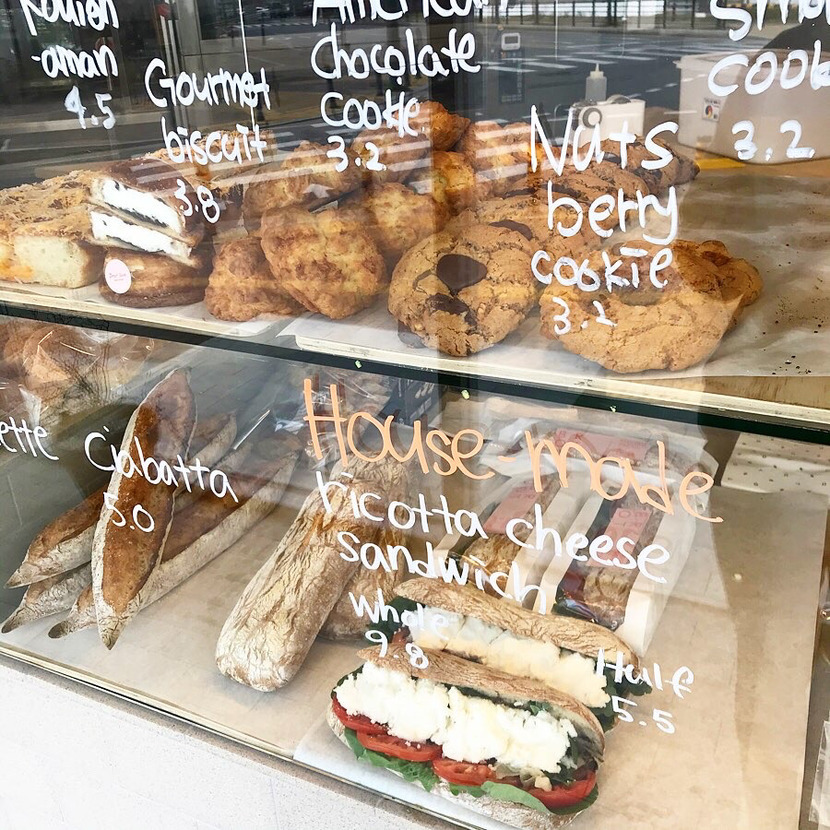 -aman
4.5
Gourmet
biscuit
3.8
American
chocolate
cookie
3.2
Nuts
berry
cookie
3.2
3.2
Ciabatta
5.0
House-made
ricotta cheese
sandwich
Whole
9.8
Half
5.5